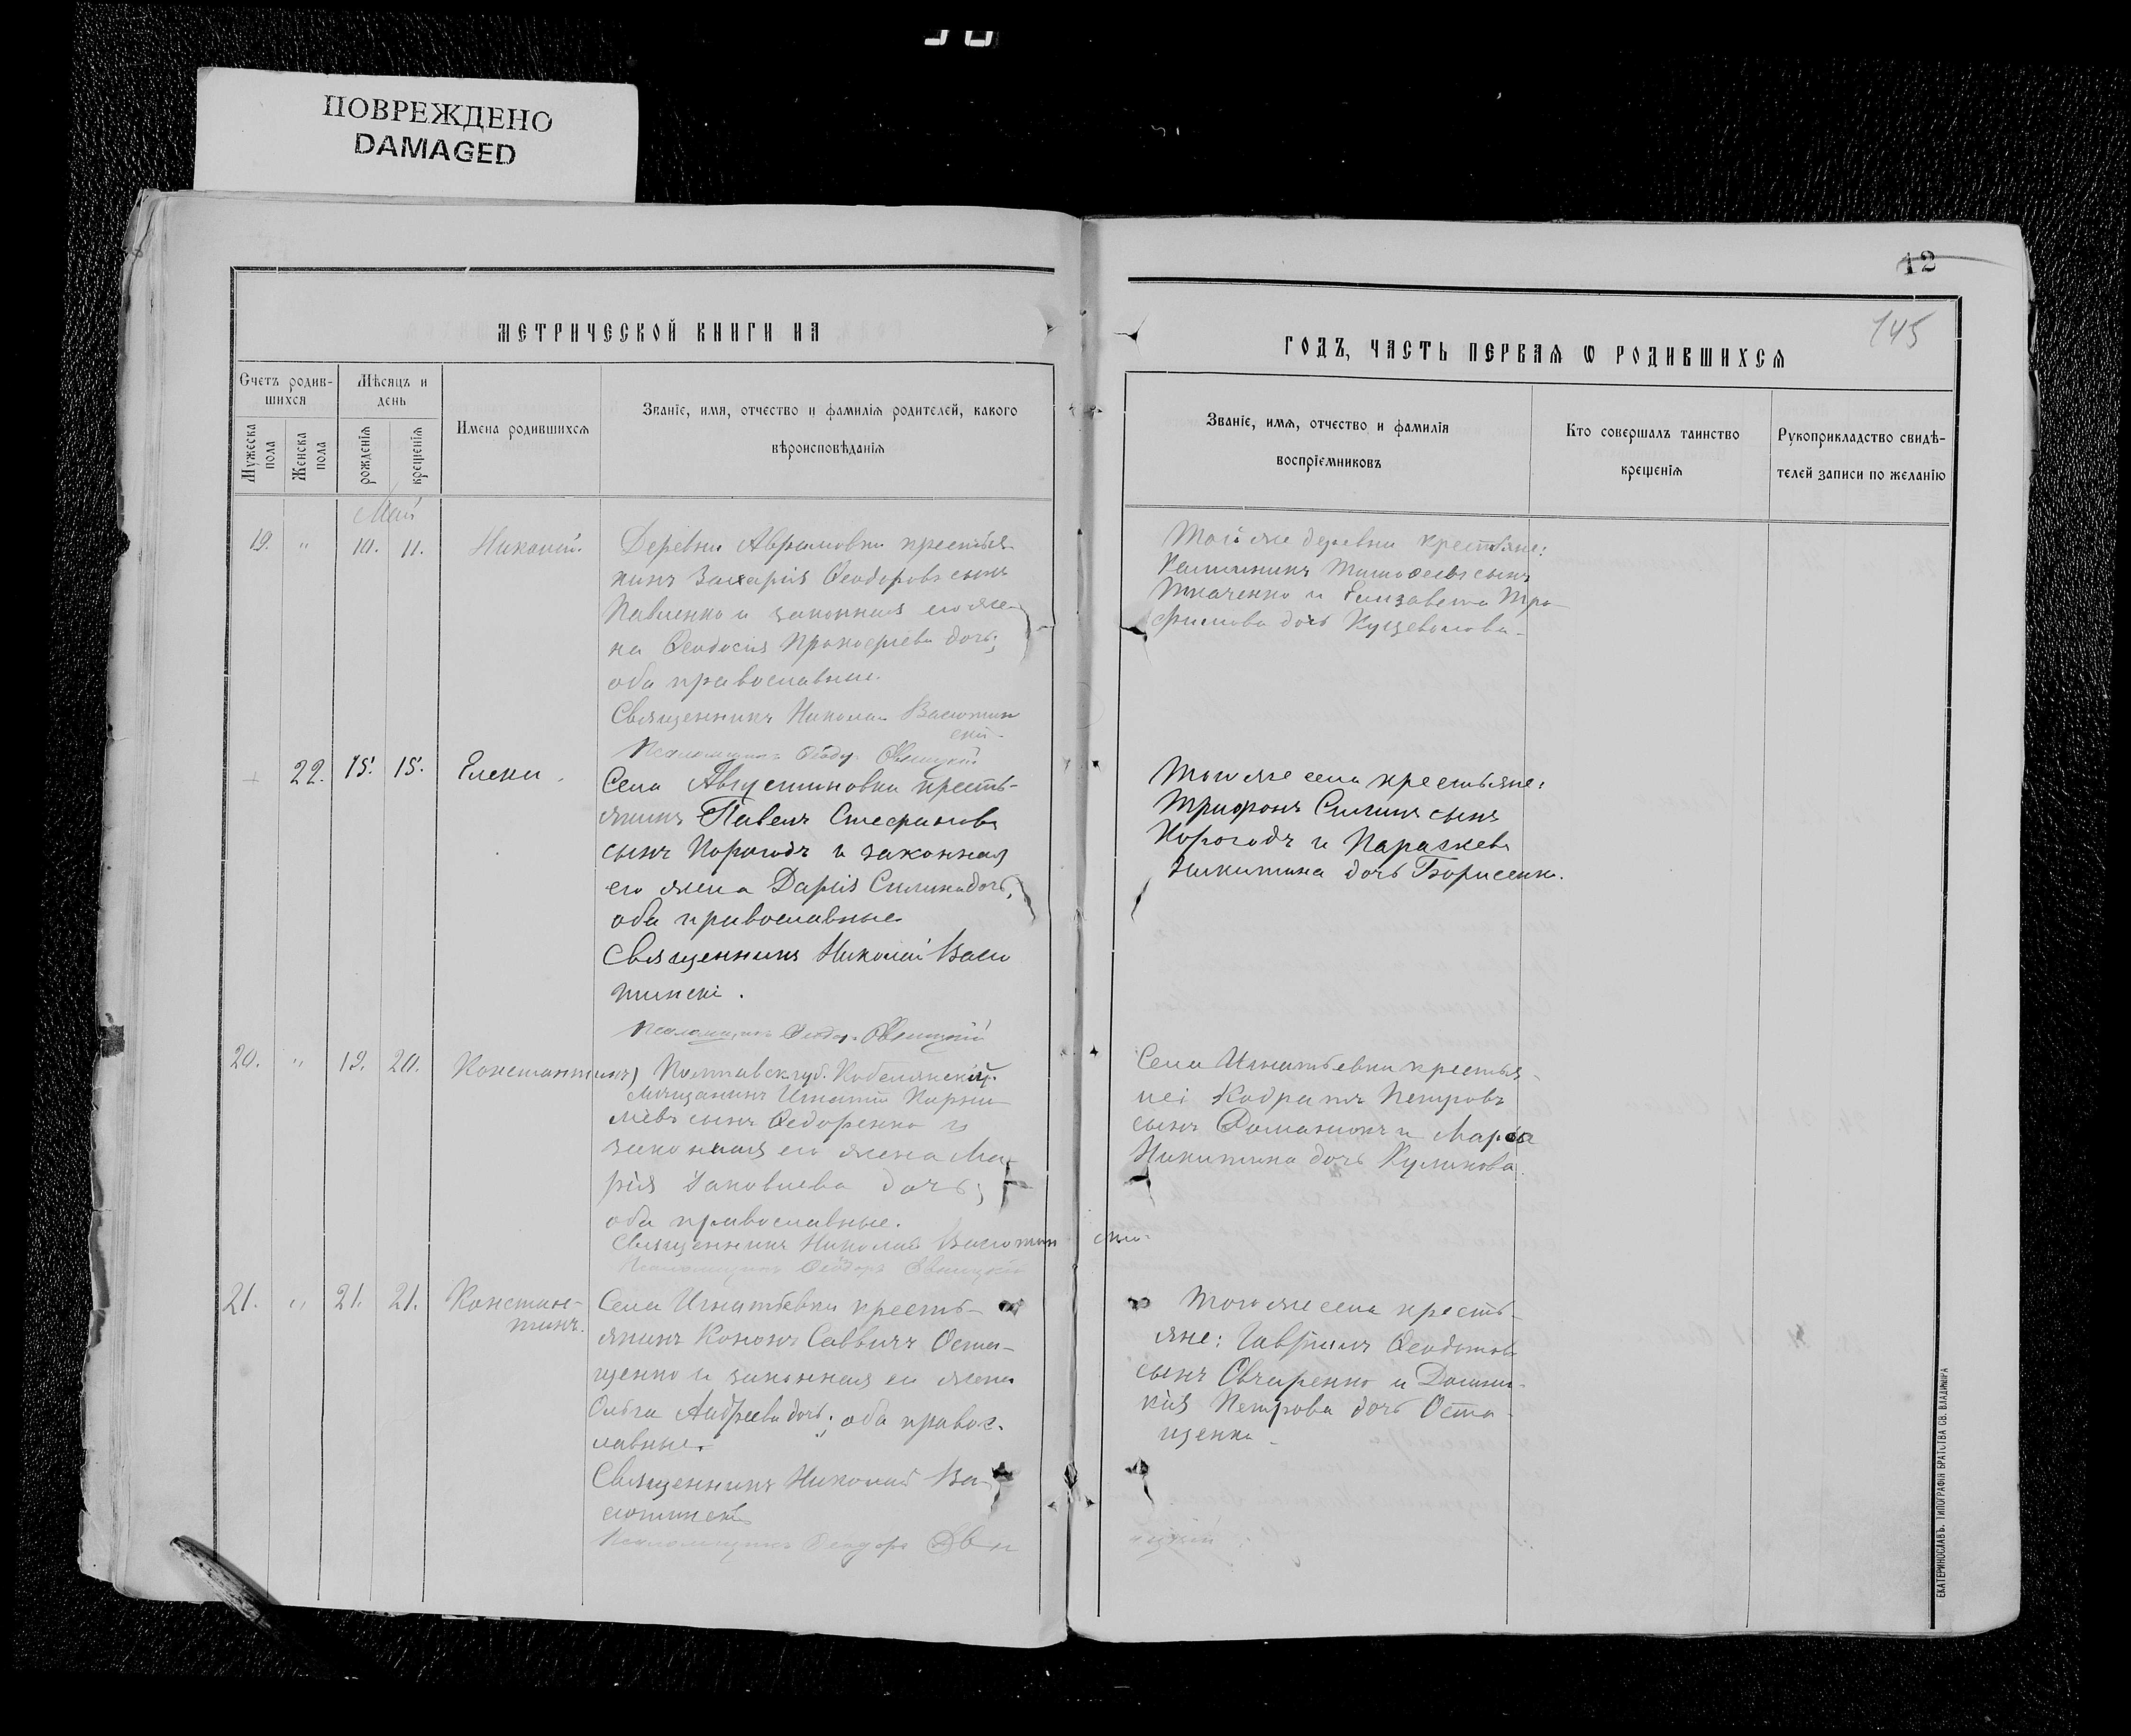 ПОВРЕЖДЕНО
DAMAGED
МЕТРИЧЕСКОЙ КНИГИ НА
Счетъ родив-
шихся
Мѣсяцъ и
день
Мужеска
пола
Женска
пола
рожденія
крещенія
Имена родившихся
Званіе, имя, отчество и фамилія родителей, какого
вѣроисповѣданія
Май
19. " 10. 11. Николай.
Деревни Аврамовки крестья-
нинъ Захарія Ѳеодоровъ сынъ
Павленко и законная его же-
на Ѳеодосія Прокофіева дочь;
оба православные.
Священникъ Николай Васютин
скій.
Псаломщикъ Ѳеодор
22. 15. 15. Елена.
Села Августиновки кресть-
янинъ Павелъ Стефановъ
сынъ Корогодъ и законная
его жена Дарія Силина дочь,
оба православные
Священникъ Николай Васю
тинскі.
Псаломщикъ Ѳеодор.
20. " 19. 20. Константинъ)
Полтавск. губ. Кобелянскій.
мѣщанинъ Игнатій
сынъ Ѳедоренко и
законная его жена Ма-
рія Іаковлева дочь;
оба православные.
Священникъ Николай Васютин скій.
Псаломщикъ Ѳеодоръ
21. " 21. 21. Констан-
тинъ.
Села Игнатьевки кресть-
янинъ Кононъ Саввичъ Оста-
щенко и законная его жена
Ольга Андреева дочь; оба правос-
лавные.
Священникъ Николай Ва-
сютинскій
Псаломщикъ Ѳеодоръ
12
145
ГОДЪ, ЧАСТЬ ПЕРВАЯ Ѡ РОДИВШИХСЯ
Званіе, имя, отчество и фамилія
воспріемниковъ
Кто совершалъ таинство
крещенія
Рукоприкладство свидѣ-
телей записи по желанію
Той же деревни крестьяне:
Калинникъ Тимоѳеевъ сынъ
Ткаченко и Елизавета Тро-
фимова дочь Куцеволова.
Того же села крестьяне:
Трифонъ Силинъ сынъ
Корогодъ и Параскева
Никитина дочь Борисенко.
Села Игнатьевки крестья-
не: Кодратъ Петровъ
сынъ и Марія
Никитина дочь Куликова.
Того же села кресть-
яне: Гавріилъ Ѳеодотовъ
сынъ Овчаренко и Домни-
кія Петрова дочь Оста-
щенко
ЕКАТЕРИНОСЛАВЪ. ТИПОГРАФІЯ БРАТСТВА СВ. ВЛАДИМІРА